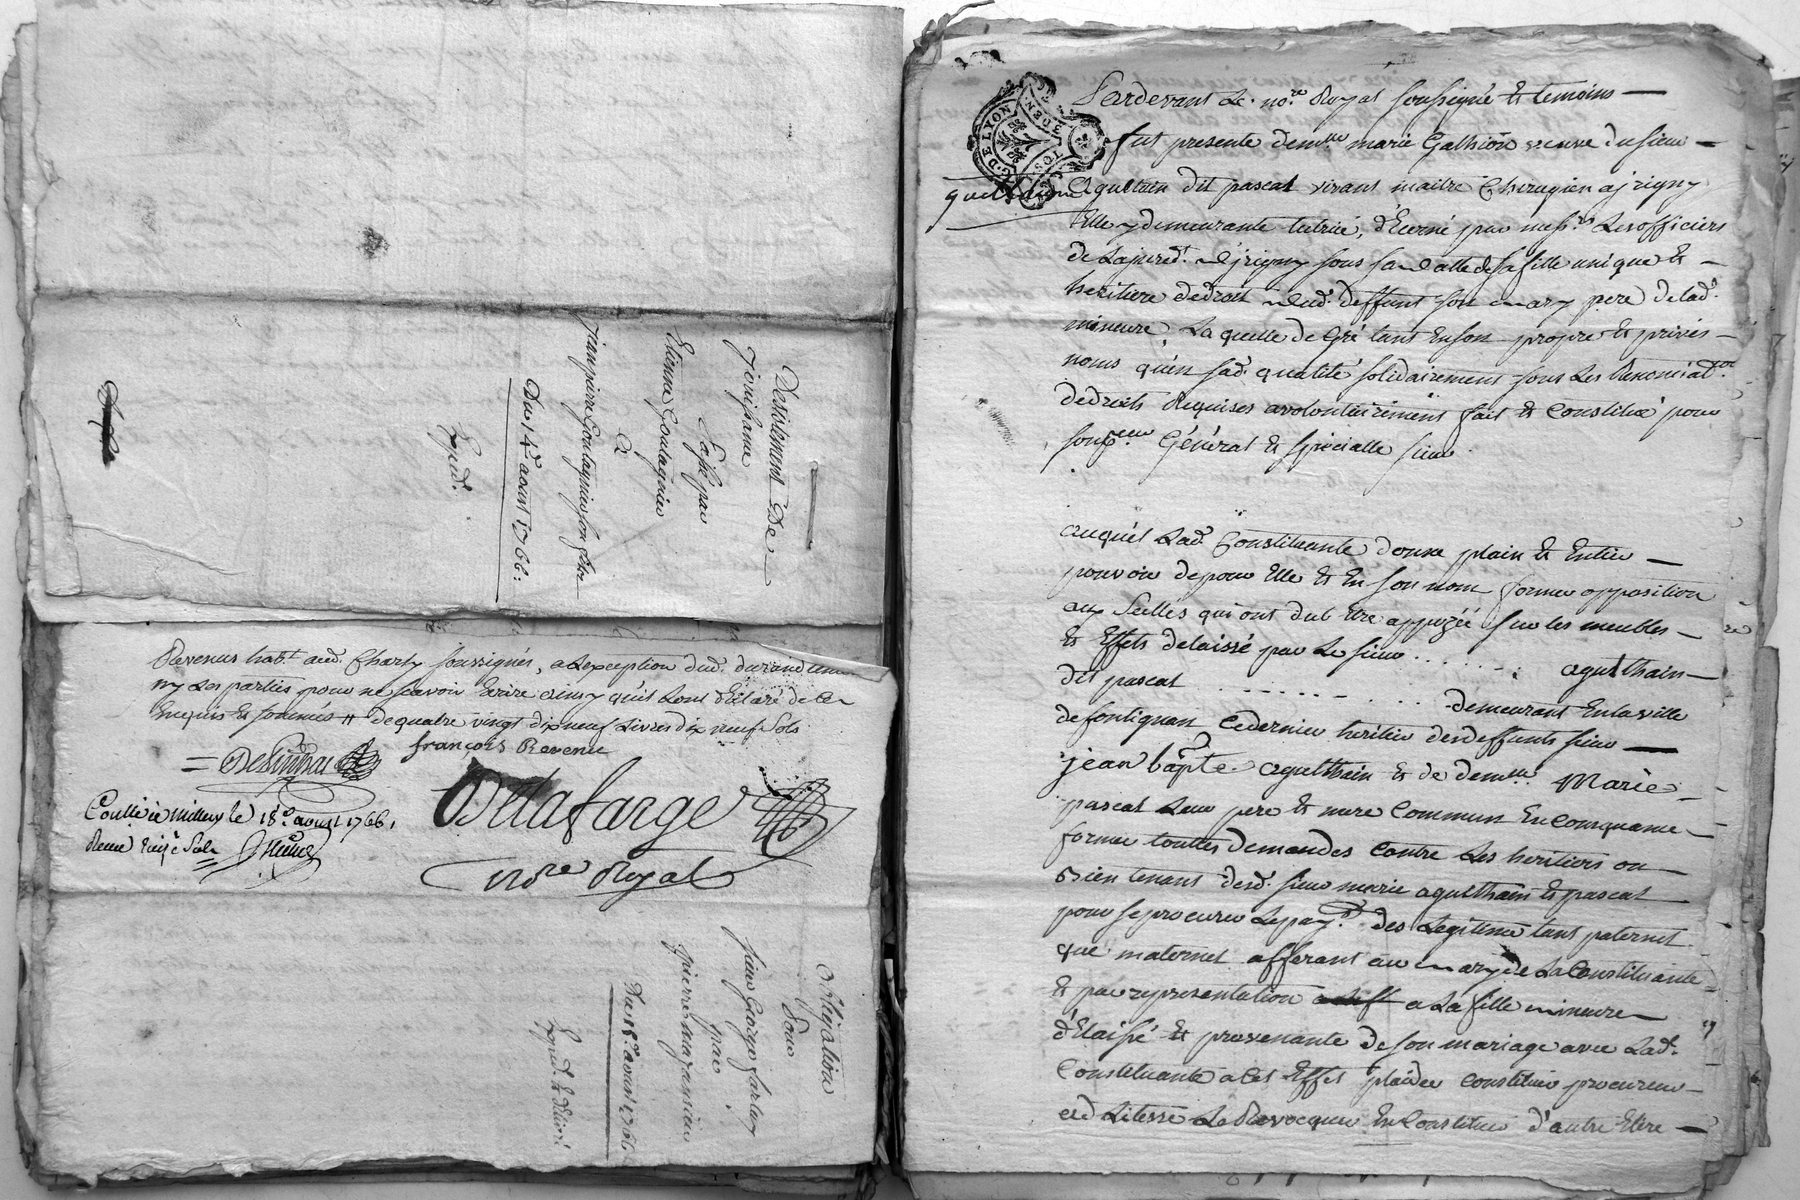 Desistement De
Jouissance
Passé par
Etienne Goutagnieu
A
Jean pierre Goutagnieu son frere
Du 14e aoust 1766:
Expéd.
Revenus hab.t aud. Charly soussignés, a lexception dud. durand
ny les parties pour ne scavoir Ecrire ainsy quils sont déclaré de ce
Enquis et sommés # de quatre vingt dix neuf Livres dix neuf sols
françois Revenu
Delafarge
Contlé à Millery le 18e aoust 1766,
no.re Royal
Obligation
Pour
sieur George
par
pierre
Du 18e aoust 1766
Expéd.
G. DE LYON
Pardevant Le no.re Royal soussigné et temoins
fut presente dem.lle marie Galhion veuve du sieur
aguethain
Aguetain dit pascal vivant maitre Chirugien a jrigny
Elle y demeurante tutrice, décerné par mess.rs Les officiers
de La jured.t d'jrigny sous sa datte de sa fille unique et
heritiere de droit dud. deffunt son mary pere de lad.
mineure, La quelle de Gré tant En son propre et privés
noms qu'en sad. qualité solidairement sous Les Renonciad.on
de droits Requises a volontairement fait et Constitué pour
son p.eur Général et speciale sieur
auquel Lad. Constituante donne plain et Entier
pouvoir de pour Elle et En son nom former opposition
aux scellés qui ont dub Etre appozée sur les meubles
et Effets delaissé par Le sieur . . . . . . . aguethain
dit pascal . . . . . . . . . demeurant En la ville
de fontignan Ce dernier heritier des deffunts sieur
jean bap.te aguethain et de dem.lle Marie
pascal Leur pere et mere Commun En Consequance
former touttes demandes Contre Les heritiers ou
Bien tenans desd. sieur marie aguethain et pascal
pour se procurer Le pay.t des Legitime tant paternel
que maternel afferant au mary de La Constituante
et par representation a La fille mineure
délaissé et provenante de son mariage avec Lad.
Constituante a Cet Effet plaider Constituer procureur
ad Litesse Le Revocquer En Constituer d'autre Elire